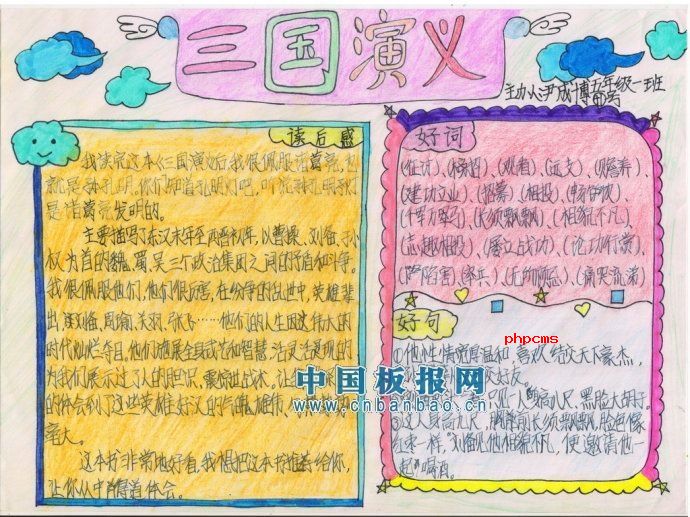 三国演义
主办人尹成博 五年级一班
读后感
我读完这本《三国演义》后,我很佩服诸葛亮,也
就是孙孔明,你们知道孔明灯吧,听说孔明灯
是诸葛亮发明的。
主要描写了东汉末年至西晋初年,以曹操、刘备、孙
权为首的魏、蜀、吴三个政治集团之间的矛盾和斗争。
我很佩服他们,他们很厉害,在纷争的乱世中,英雄辈
出,刘备、周瑜、关羽、张飞……他们的人生因这伟大的
时代灿烂夺目,他们施展全身武艺和智慧,活灵活现的
为我们展示过了人的胆识
的体会到了这些英雄好汉的
毫大。
这本书非常地好看,我想把这本书推荐给你,
让你从中体会。
好词
(征讨)、(榜招)、(观看)、(运支)、(赡养)、
(建功立业)、(招募)、(相投)、(畅饮)、
(长须飘飘)、(相貌不凡)、
(志趣相投)、(屡立战功)、(论功行赏)、
(陷害)、(痛哭流涕)
好句
phpcms
①他性情宽厚温和,喜欢结交天下豪杰,
交好友。
人身高八尺,黑脸大胡子。
③这人身高九尺,胸前长须飘飘,脸色像
红枣一样,刘备见他相貌不凡,便邀请他一
起喝酒。
中国板报网
www.cnbanbao.cn